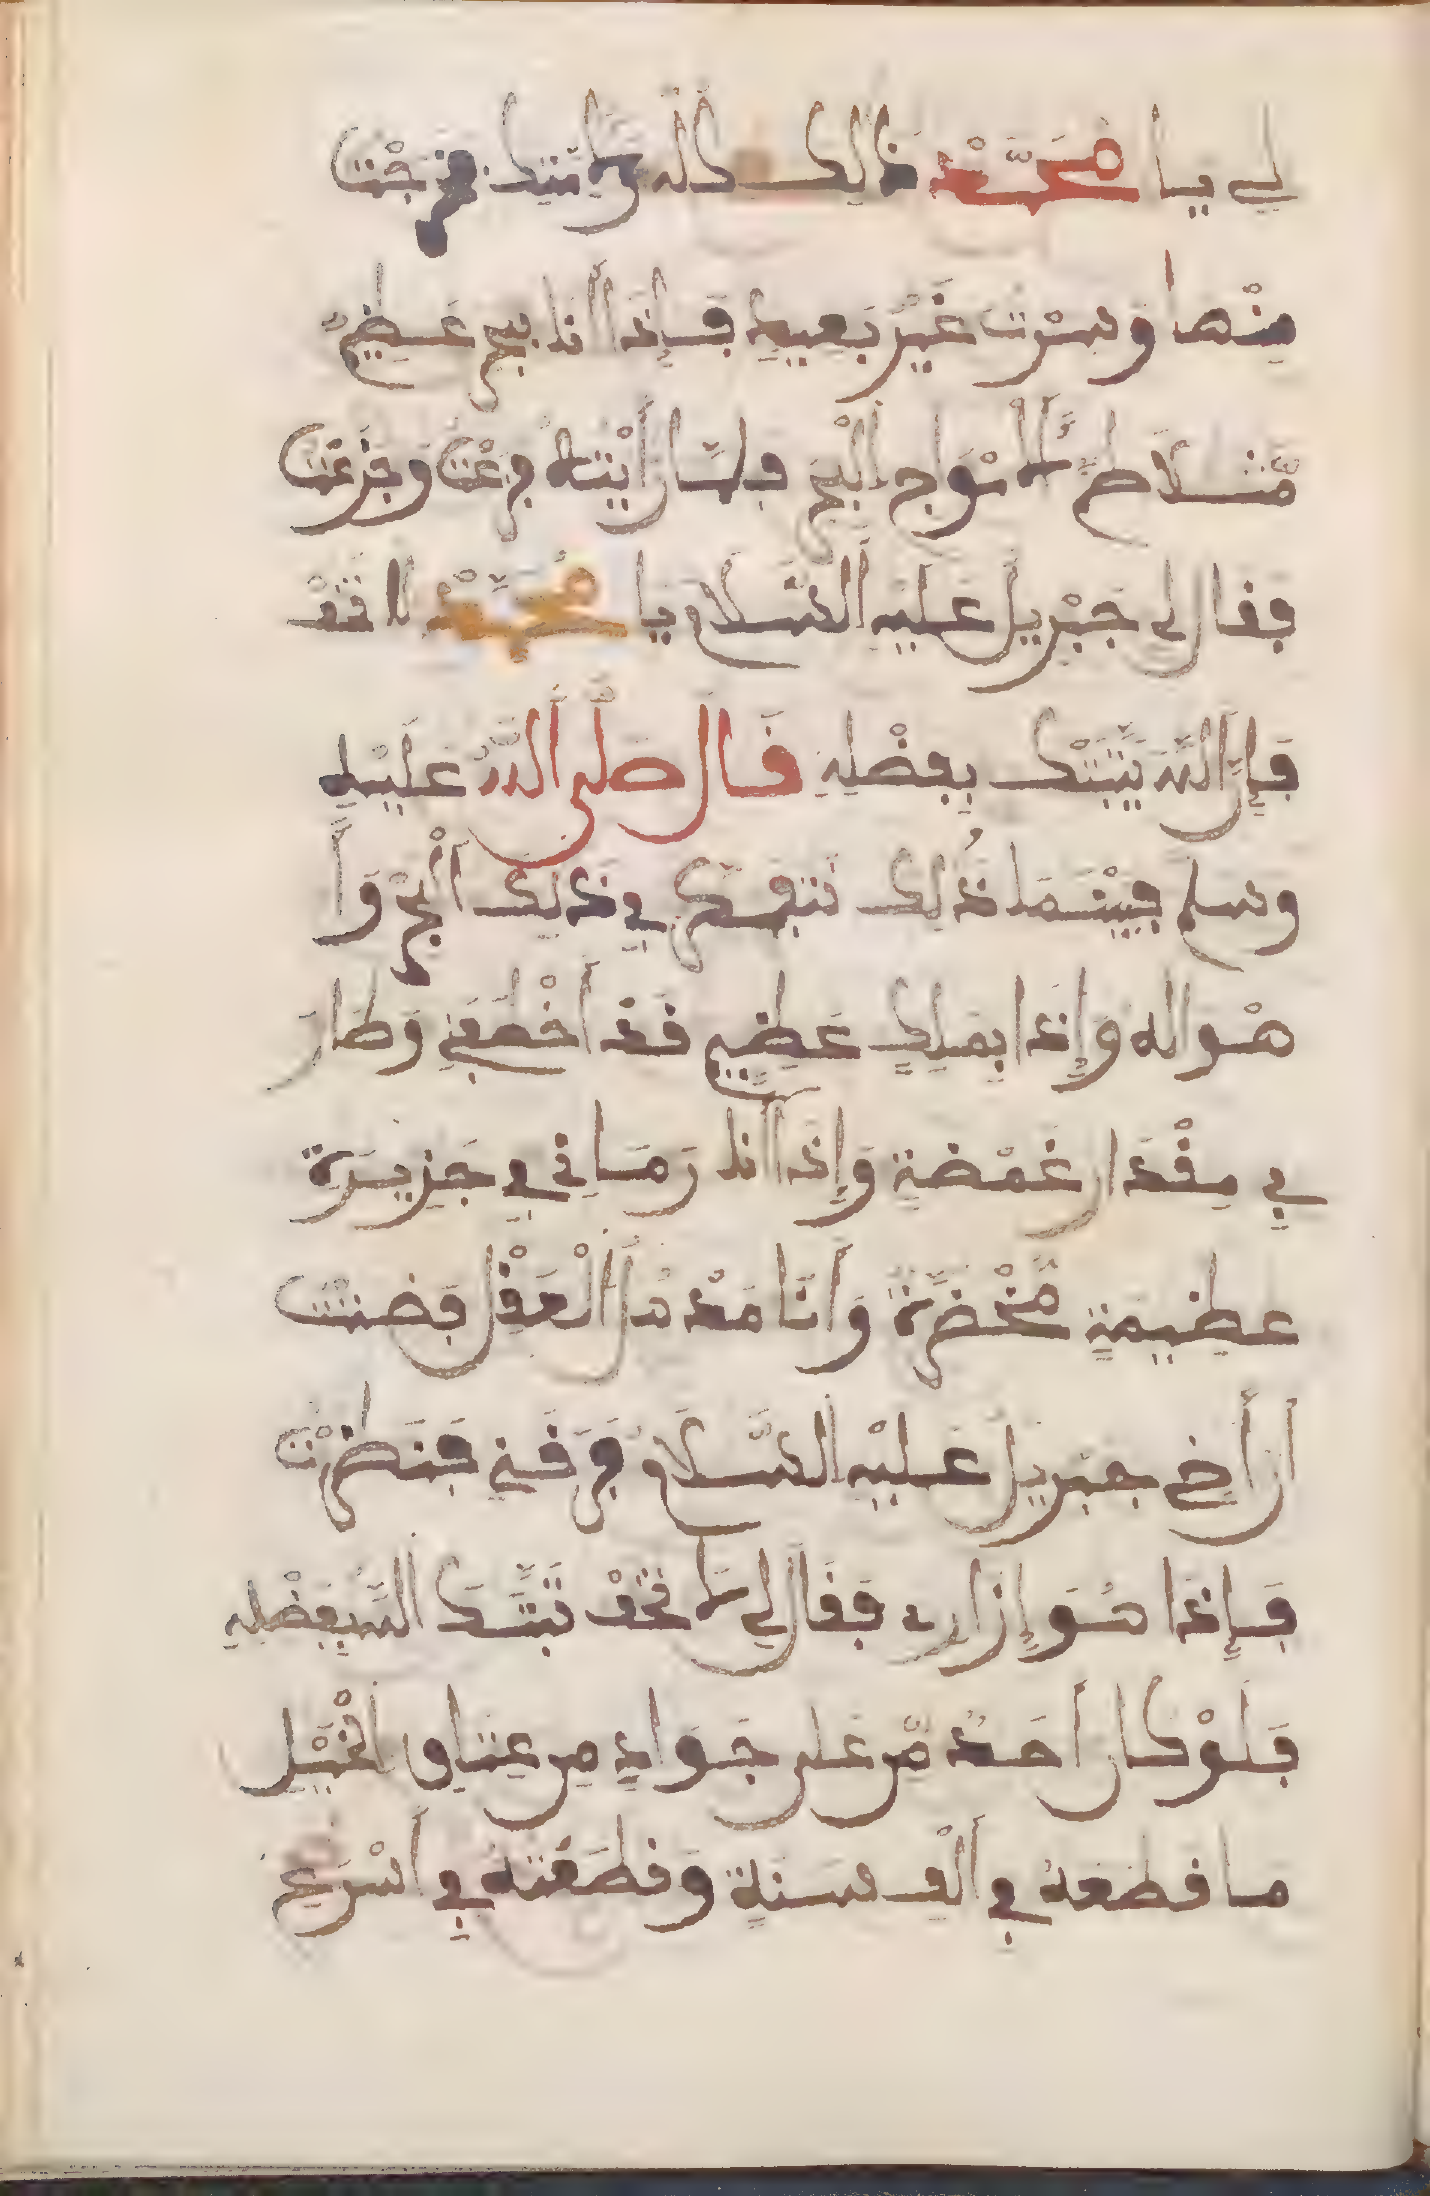 لي يا مُحَمَّدْ ذالك كله ولامتك فخرجْتُ
مِنْها وسِرْت غَيْر بَعِيدٍ فَإِذَا أنا ببحر عَظِيمٍ
مّتلاطم الامْوَاج البحْر فلمّا رَأيْته فزعْتُ وَجَزعْتُ
فقال لي جَبْريل عليْهِ السَّلام يا مُحَمَّدْ لا تخفْ
فَإنَّ اللّهَ يُثَبّتْكَ بِفضْلِهِ قَالَ صَلَّى اللهُ عَليْهِ
وسلم فبيْنَمَا كُذلك نتفكر في ذلك البحْر وَأ
هْواله وَإِذَا بمَلِكٍ عَظِيمٍ قَدْ أَخْطَفَنِي وَطَارَ
فِي مِقْدَار غَمْضَةٍ وَإِذَا أنا رَمَانِي فِي جَزِيرَة
عظِيمَةٍ مُّخْضرّة وَأنَا مَدْهُول الْعَقْل فظننْتُ
أن أخي جبريل عليْهِ السَّلام فَرقَنِي فنظرْت
فَإِذَا هُوَ إزاري فقَالَ لِي لا تخفْ ثبّتَكَ الله بِفضْلِهِ
فَلَوْ كان أحَدٌ مّن عَلى جَوَادٍ مِن عتاق الخيْل
ما قطعَهُ فِي ألْفِ سَنَةٍ وَقطَعْتهُ فِي أسْرَع